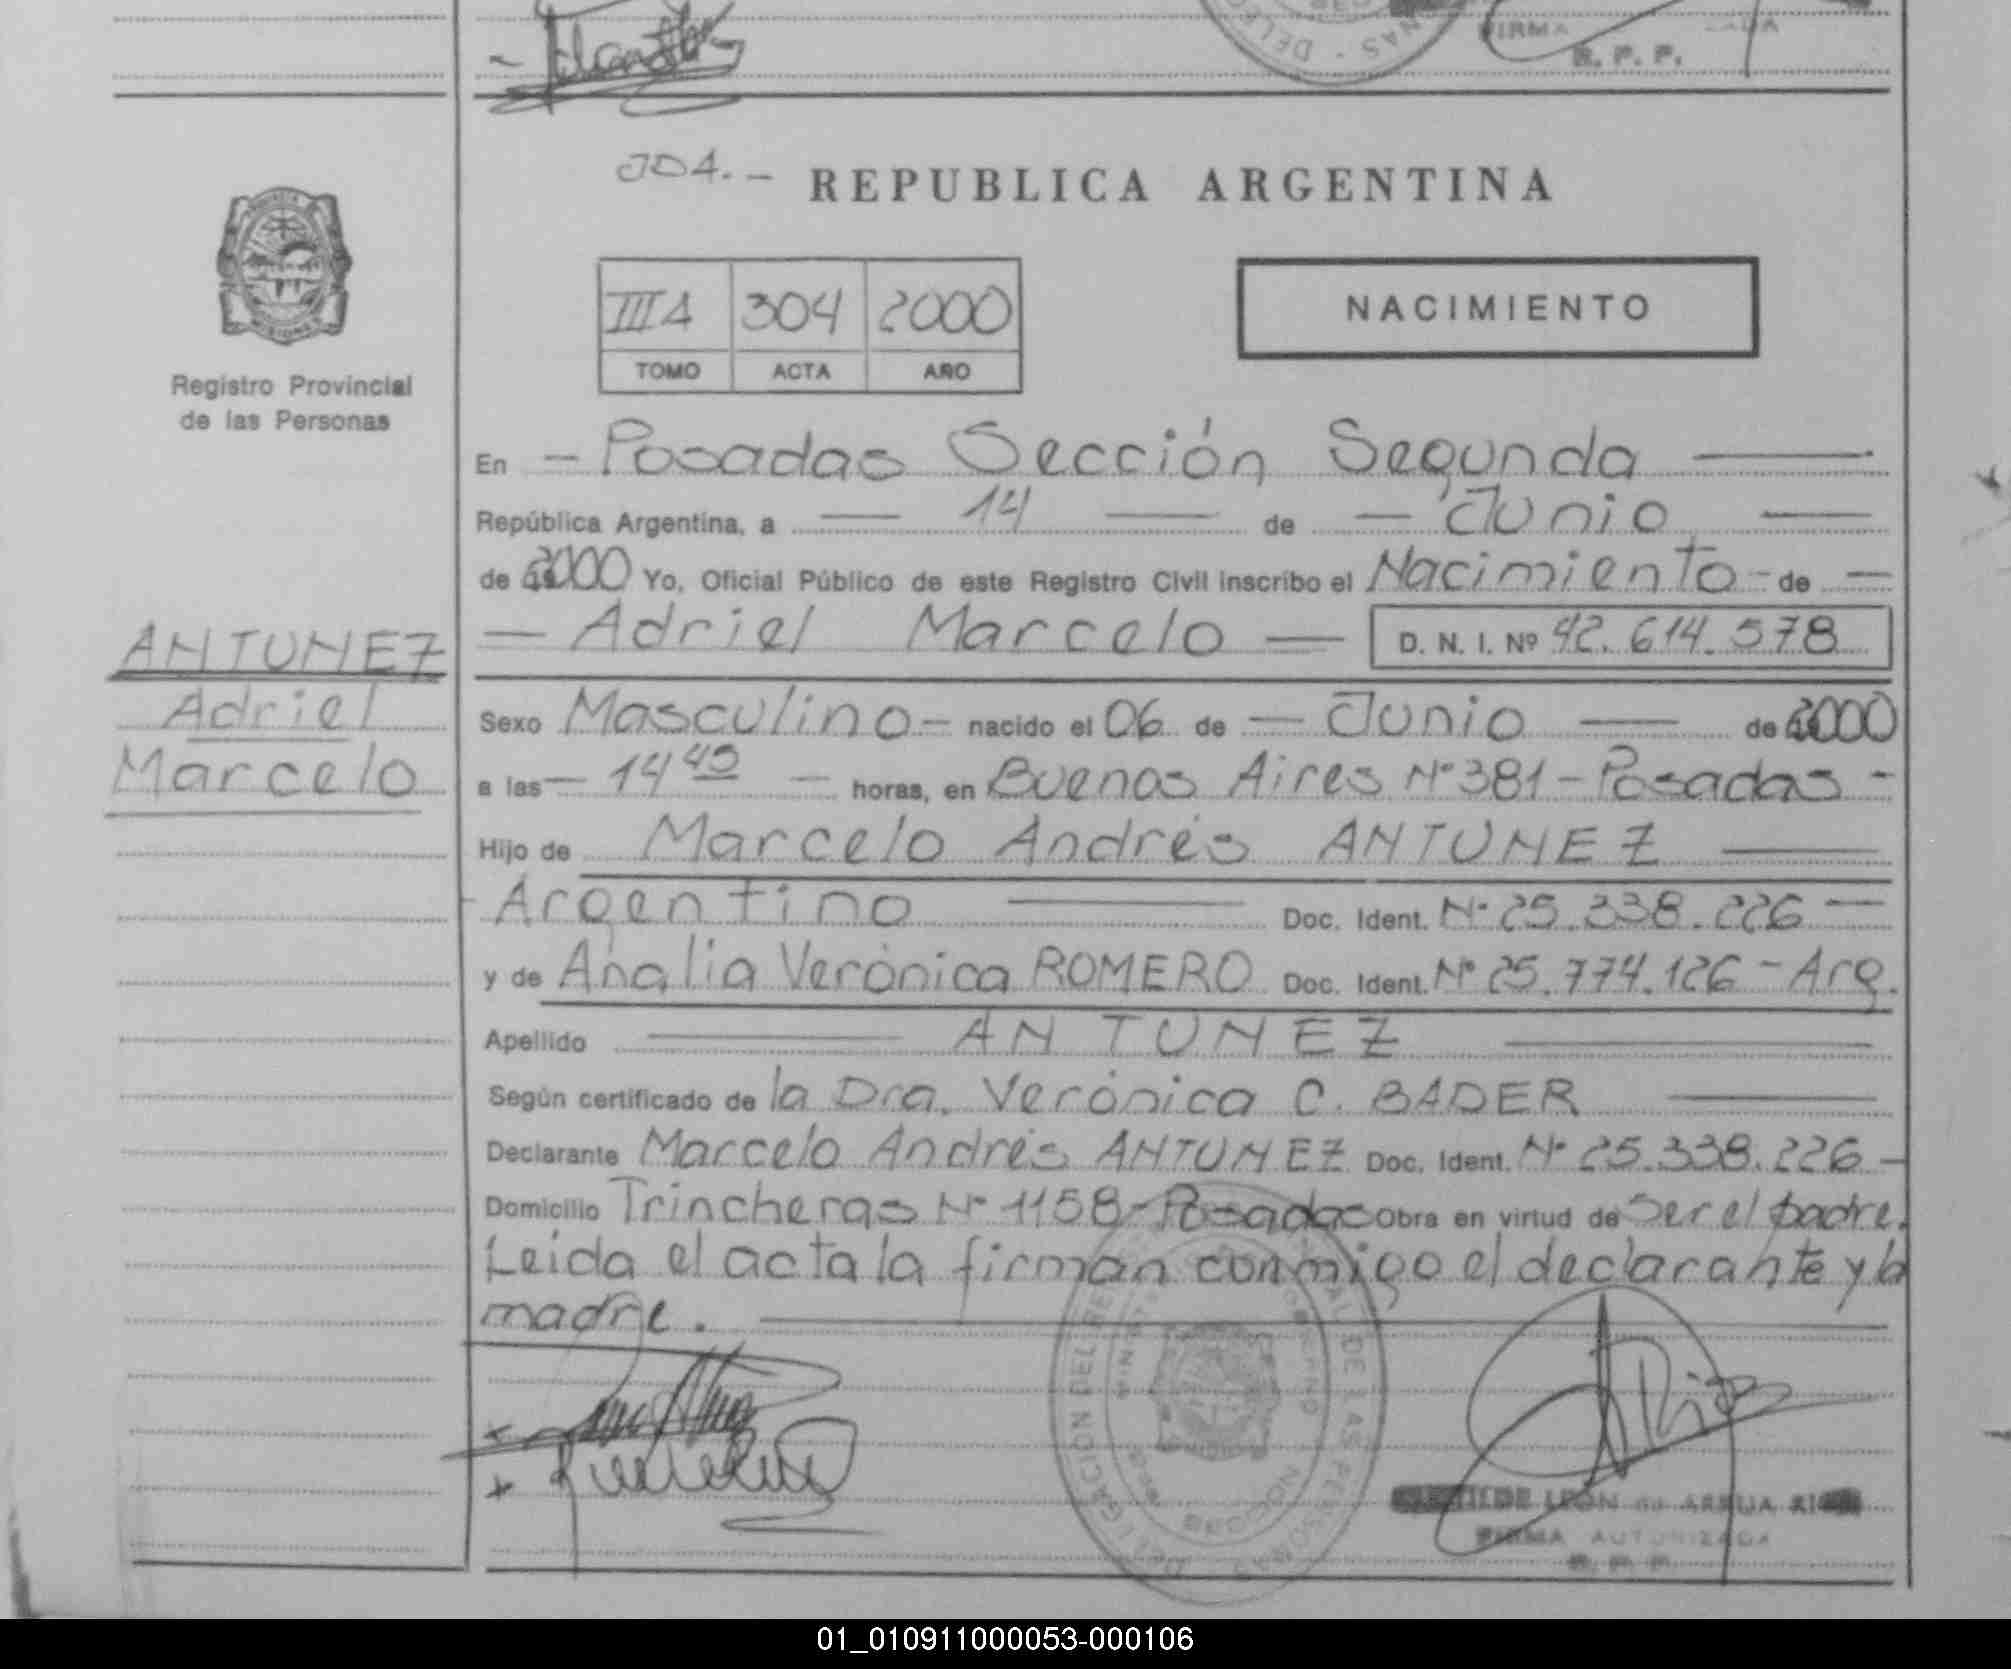 FIRMA
R. P. P.
304.-
REPUBLICA ARGENTINA
III A 304 2000
TOMO ACTA AÑO
NACIMIENTO
Registro Provincial
de las Personas
En - Posadas Sección Segunda
República Argentina, a 14 de - Junio
de 2000 Yo, Oficial Público de este Registro Civil inscribo el Nacimiento - de
- Adriel Marcelo - D. N. I. Nº 42.614.578
ANTUNEZ
Adriel
Marcelo
Sexo Masculino - nacido el 06 de - Junio de 2000
a las - 14 45 - horas, en Buenos Aires Nº 381 - Posadas -
Hijo de Marcelo Andrés ANTUNEZ
Argentino Doc. Ident. Nº 25.338.226 -
y de Analia Verónica ROMERO Doc. Ident. Nº 25.774.126 - Arg.
Apellido ANTUNEZ
Según certificado de la Dra. Verónica C. BADER
Declarante Marcelo Andrés ANTUNEZ Doc. Ident. Nº 25.338.226 -
Domicilio Trincheras Nº 1158 - Posadas Obra en virtud de ser el padre.
Leida el acta la firman conmigo el declarante y la
madre.
LEÓN de ARRUA
FIRMA AUTORIZADA
R. P. P.
01_010911000053-000106